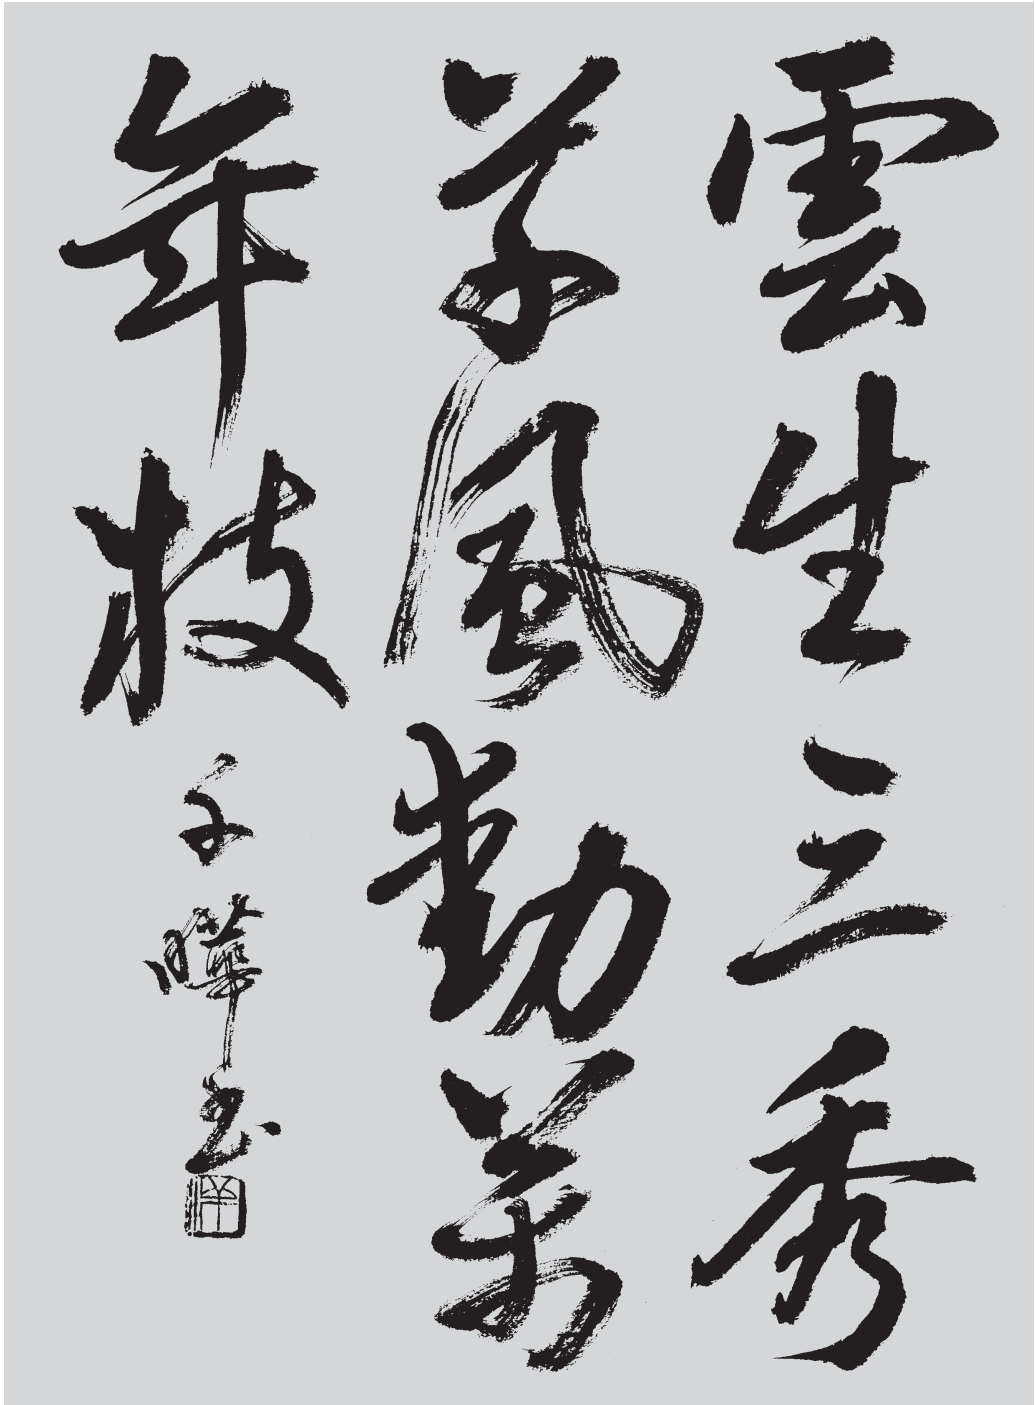 雲生三秀
草風動萬
年枝
子曄